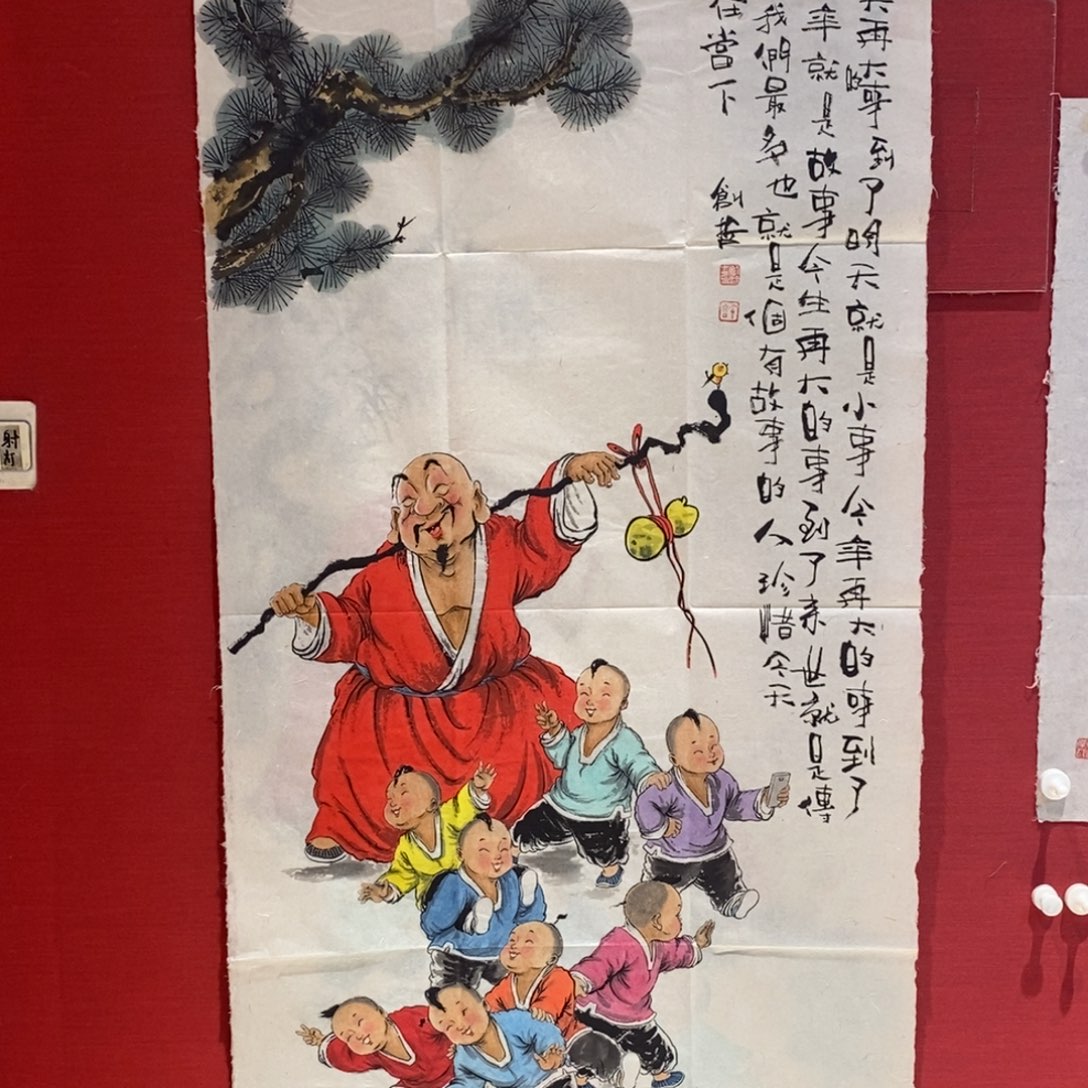 天再大的事到了明天就是小事今年再大的事到了
年就是故事今生再大的事到了来世就是傳
我們最多也就是個有故事的人珍惜今天
在當下
創哲
射灯